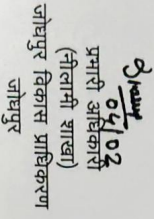 04/02
प्रभारी अधिकारी
(नीलामी शाखा)
जोधपुर विकास प्राधिकरण
जोधपुर